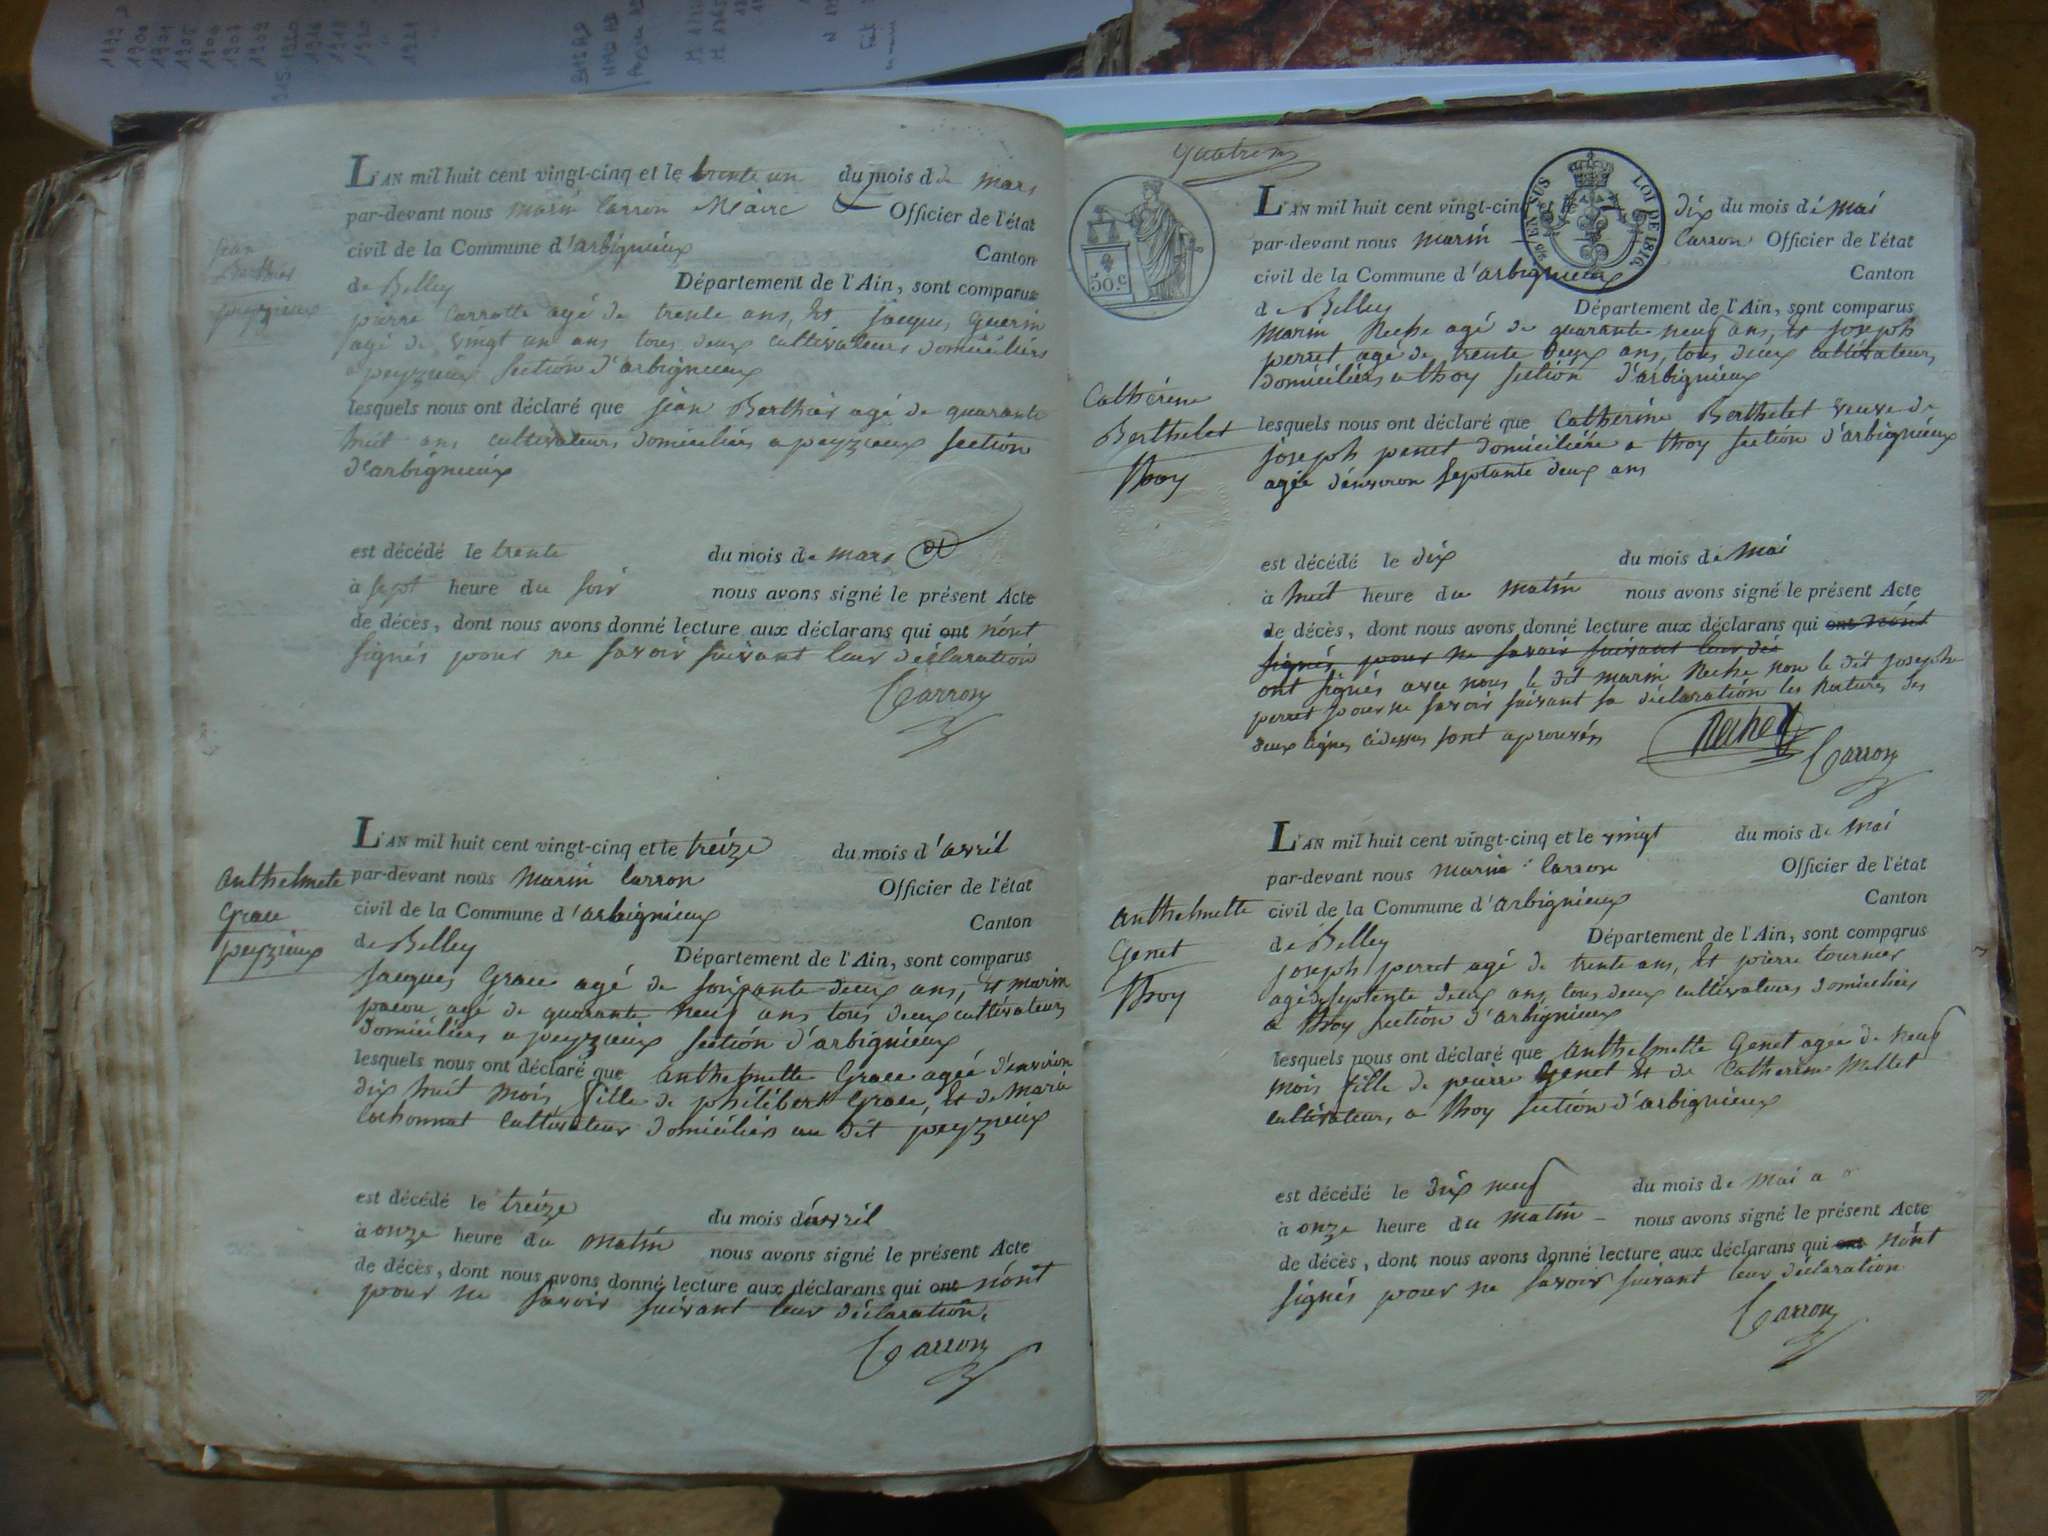 1900
1920
1921
Jean
Berthier
peyzieux
L'AN mil huit cent vingt-cinq et le trente un du mois de mars
par-devant nous marin Carron Maire Officier de l'état
civil de la Commune d'arbignieux Canton
de Belley Département de l'Ain, sont comparus
pierre Carrotte agé de trente ans, et jacques Guerin
agé de vingt un ans tous deux cultivateurs domiciliés
a peyzieux section d'arbignieux
lesquels nous ont déclaré que jean Berthier agé de quarante
huit ans cultivateurs domiciliés a peyzieux section
d'arbignieux
est décédé le trente du mois de mars
à sept heure du soir nous avons signé le présent Acte
de décès, dont nous avons donné lecture aux déclarans qui ont n'ont
signés pour ne savoir suivant leur déclaration
Carron
Anthelmete
Grace
peyzieux
L'AN mil huit cent vingt-cinq et le treize du mois d'avril
par-devant nous Marin Carron Officier de l'état
civil de la Commune d'arbignieux Canton
de Belley Département de l'Ain, sont comparus
Jacques Grace agé de soixante deux ans, et marin
pacou agé de quarante neuf ans tous deux cultivateurs
domiciliés a peyzieux section d'arbignieux
lesquels nous ont déclaré que anthelmette Grace agée d'environ
dix huit mois, fille de philibert Grace, et de Marie
Cochonnat Cultivateur domiciliés au dit peyzieux
est décédé le treize du mois d'avril
à onze heure du matin nous avons signé le présent Acte
de décès, dont nous avons donné lecture aux déclarans qui ont n'ont
pour ne savoir suivant leur déclaration.
Carron
50.c
EN SUS LOI DE 1816.
L'AN mil huit cent vingt-cinq dix du mois de mai
par-devant nous marin Carron Officier de l'état
civil de la Commune d'arbignieux Canton
de Belley Département de l'Ain, sont comparus
marin Reche agé de quarante neuf ans, et joseph
perret agé de trente deux ans, tous deux cultivateurs
domiciliés a thoy section d'arbignieux
Catherine
Berthelet
thoy
lesquels nous ont déclaré que Catherine Berthelet veuve de
joseph penet domiciliée a thoy section d'arbignieux
agée d'environ septante deux ans
est décédé le dix du mois de mai
à huit heure du matin nous avons signé le présent Acte
de décès, dont nous avons donné lecture aux déclarans qui ont n'ont
signés pour ne savoir suivant leur dé
ont signés avec nous le dit marin Reche non le dit joseph
perret pour ne savoir suivant sa déclaration les ratures des
deux lignes cidessus sont aprouvés
Reche
Carron
Anthelmette
Genet
thoy
L'AN mil huit cent vingt-cinq et le vingt du mois de mai
par-devant nous marin Carron Officier de l'état
civil de la Commune d'arbignieux Canton
de Belley Département de l'Ain, sont comparus
joseph perret agé de trente ans, et pierre tournier
agé de septente deux ans, tous deux cultivateurs domiciliés
a thoy section d'arbignieux
lesquels nous ont déclaré que anthelmette Genet agée de neuf
mois fille de peierre Genet et de Catherine Mallet
cultivateurs, a thoy section d'arbignieux
est décédé le dix neuf du mois de mai a
à onze heure du matin nous avons signé le présent Acte
de décès, dont nous avons donné lecture aux déclarans qui ont n'ont
signés pour ne savoir suivant leur déclaration
Carron